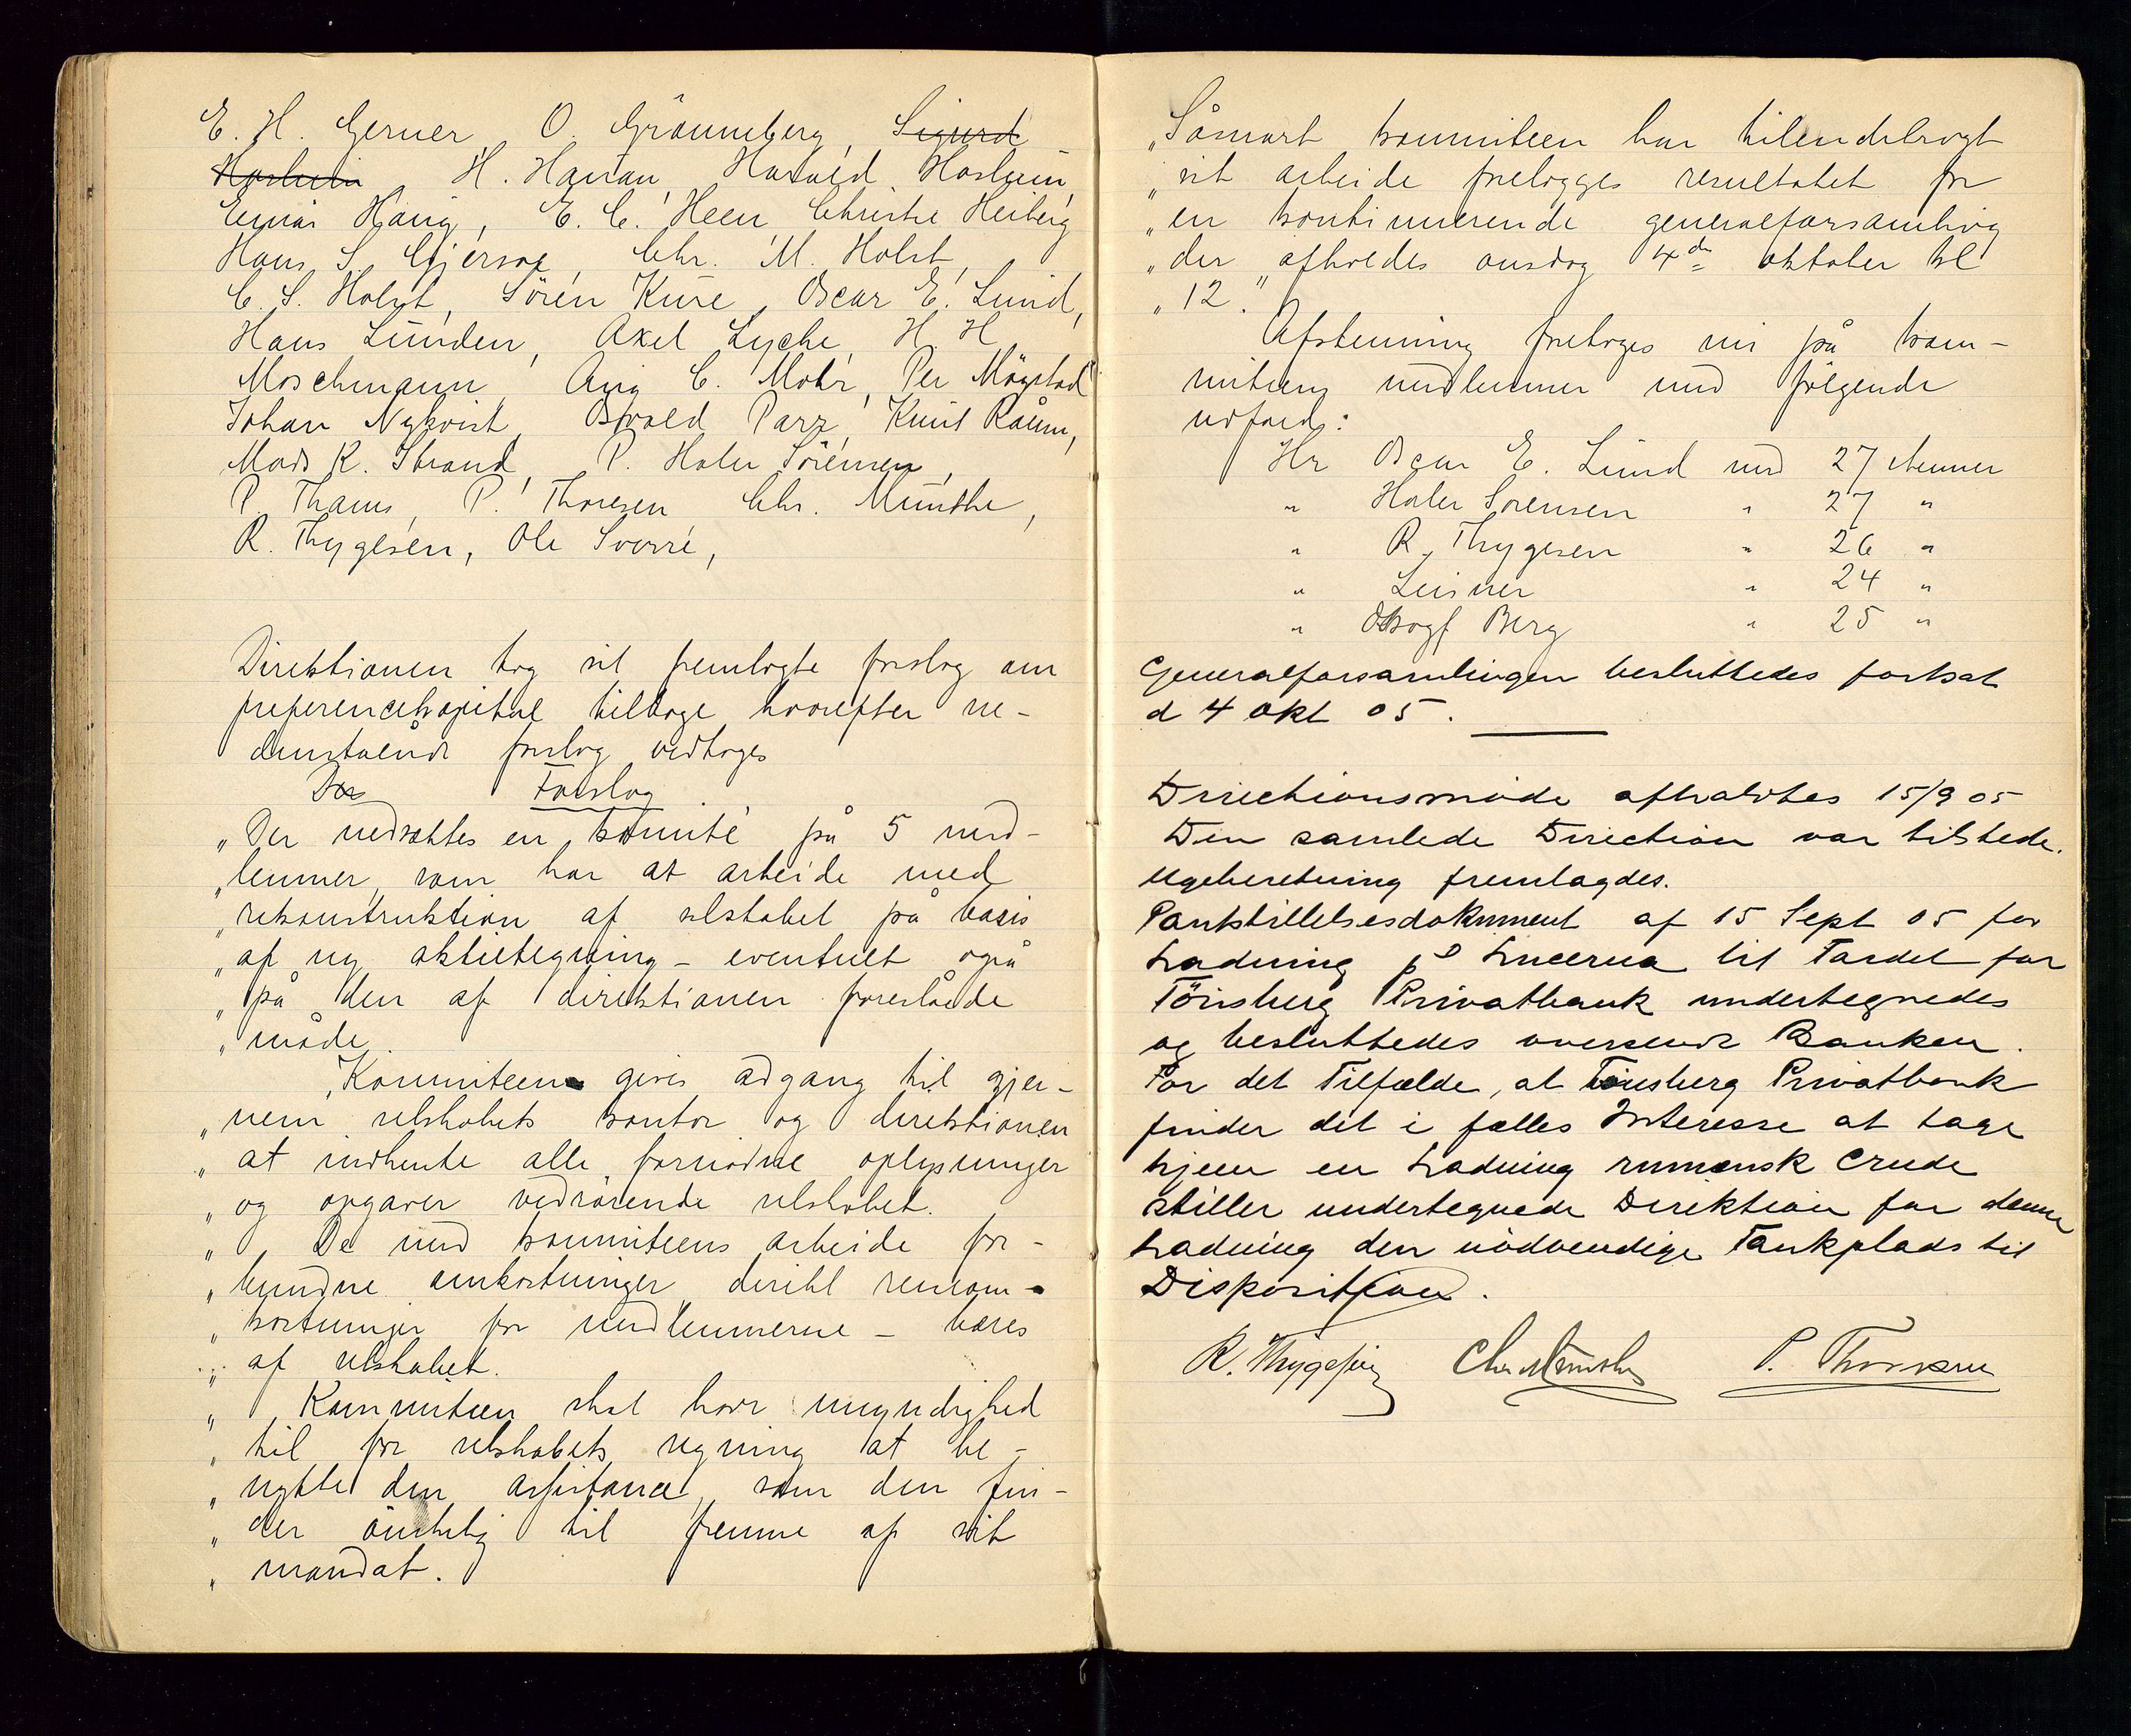 E. H. Gerner, O. Grönneberg, Sigurd
Haslum, H. Hanan, Harald Haslum,
Einar Haug, E. C. Heen, Christie Heiberg
Hans S. Gjersøe, Chr. M. Holst,
C. S. Holst, Sören Kure, Oscar E. Lund,
Hans Lunden, Axel Lyche, H. H.
Moschmann, Aug C. Mohr, Per Mögstad
Johan Nykvist, Osvald Parr, Knut Raum,
Mads K. Strand, P. Holer Sörensen,
P. Thams, P. Thoresen Chr. Munthe,
R. Thygesen, Ole Sverre,
Direktionen tog sit fremlagte forslag om
preferencekapital tilbage hvorefter ne-
denstående forslag vedtoges
Der Forslag
„Der nedsættes en komité på 5 med-
„lemmer, som har at arbeide med
„rekonstruktion af selskabet på basis
„af ny aktietegning - eventuelt også
„på den af direktionen foreslåede
„måde.
„Kommiteen gives adgang til gjen-
„nem selskabets kontor og direktionen
„at indhente alle fornødne oplysninger
„og opgaver vedrørende selskabet.
„De med kommiteens arbeide for-
„bundne omkostninger deribl reiseom-
„kostninger for medlemmerne - bæres
„af selskabet.
„Kommiteen skal have myndighed
„til for selskabets regning at be-
„nytte den assistance, som den fin-
„der önskelig til fremme af sit
„mandat.
„Såsnart kommiteen har tilendebragt
„sit arbeide forelægges resultatet for
„en kontinuerende generalforsamling
„der afholdes onsdag 4de oktober kl
„12."
Afstemning foretoges nu på kom-
miteens medlemmer med fölgende
udfald:
Hr Oscar E. Lund med 27 stemmer
" Holer Sörensen " 27 "
" R. Thygesen " 26 "
" Leisner " 24 "
" Skogf Berg " 25 "
Generalforsamlingen besluttedes fortsat
d 4 Okt 05.
Directionsmöde afholdtes 15/9 05
Den samlede Direction var tilstede.
Ugeberetning fremlagdes.
Pantstillelsesdokument af 15 Sept 05 for
Ladning pr Lucerna til Fordel for
Tönsberg Privatbank undertegnedes
og besluttedes oversendt Banken.
For det Tilfælde, at Tönsberg Privatbank
finder det i fælles Interesse at tage
hjem en Ladning rumænsk Crude
stiller undertegnede Direktion for denne
Ladning den nödvendige Tankplads til
Disposition.
R. Thygesen Chr Munthe P. Thoresen